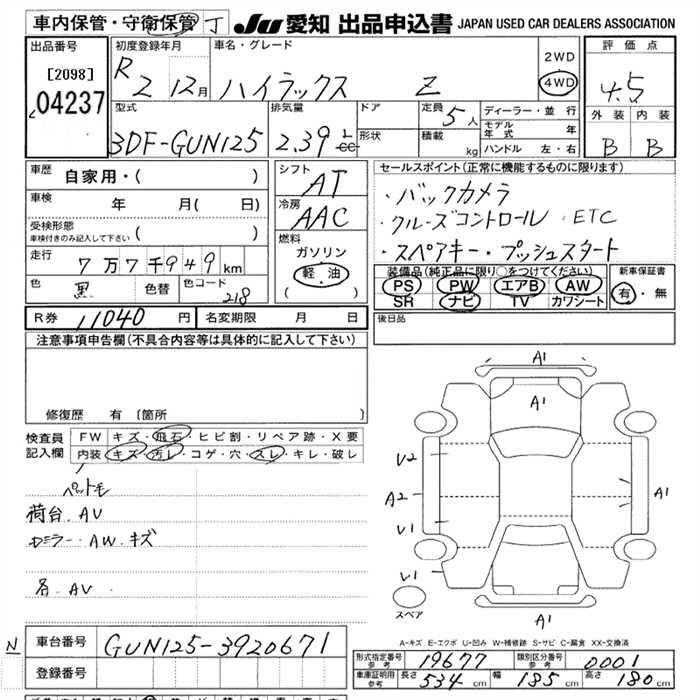 車内保管・守衛保管 丁
JU 愛知 出品申込書 JAPAN USED CAR DEALERS ASSOCIATION
出品番号
[2098]
04237
初度登録年月
R 2 12月
車名・グレード
ハイラックス Z
2WD
4WD
評価点
4.5
外装 内装
B B
型式
3DF-GUN125
排気量
2.39 L
cc
ドア
形状
定員 5人
積載 kg
ディーラー・並行
モデル年式 年
ハンドル 左・右
車歴
自家用・( )
車検 年 月( 日)
受検形態
車検付きのみ記入して下さい ( )
走行 7万7千949km
色 黒 色替 色コード 218
シフト
AT
冷房
AAC
燃料
ガソリン
軽・油
( )
セールスポイント(正常に機能するものに限ります)
・バックカメラ
・クルーズコントロール・ETC
・スペアキー・プッシュスタート
装備品(純正品に限り○をつけてください)
PS PW エアB AW
SR ナビ TV カワシート
新車保証書
有・無
R券 11040円 名変期限 月 日
後日品
注意事項申告欄(不具合内容等は具体的に記入して下さい)
修復歴 有〔箇所 〕
検査員記入欄
FW キズ・飛石・ヒビ割・リペア跡・X要
内装 キズ・汚レ・コゲ・穴・スレ・キレ・破レ
ペット毛
荷台.AV
ミラー.AW.キズ
各.AV
A1
A1
U2
A2
V1
V1
A1
A1
スペア
A-キズ E-エクボ U-凹み W-補修跡 S-サビ C-腐食 XX-交換済
N
車台番号 GUN125-3920671
登録番号
形式指定番号 参考 19677
類別区分番号 参考 0001
車庫証明用 参考 長さ 534cm 幅 185cm 高さ 180cm